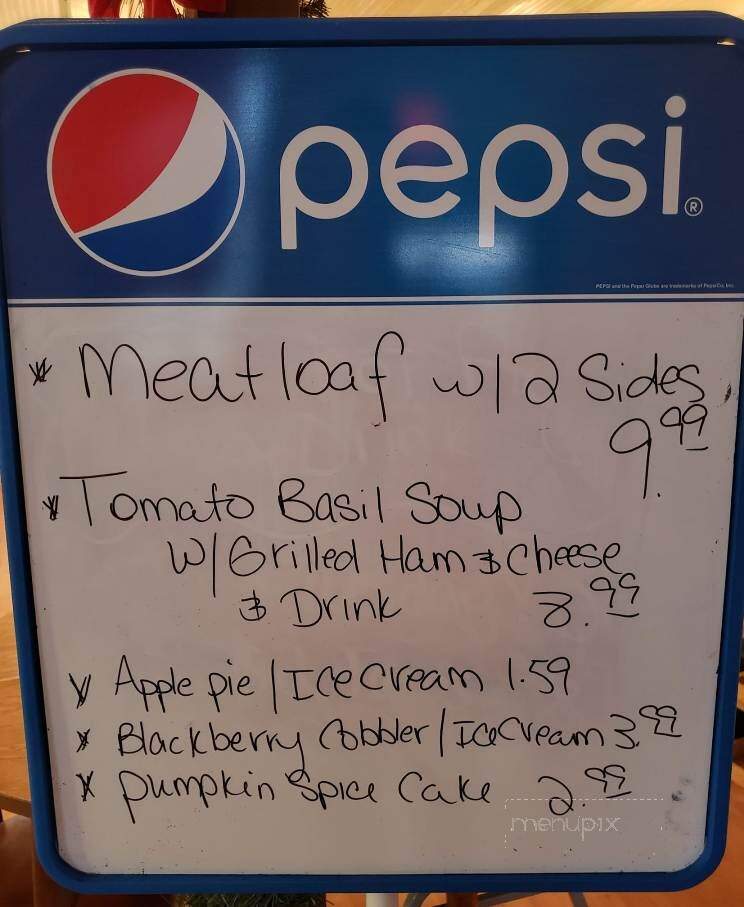 pepsi®
PEPSI and the Pepsi Globe are trademarks of PepsiCo, Inc.
* Meatloaf w/2 Sides
9.99
* Tomato Basil Soup
W/Grilled Ham & Cheese
& Drink 8.99
* Apple pie/Ice Cream 1.59
* Blackberry Cobbler/Ice Cream 3.99
* Pumpkin Spice Cake 2.99
menupix